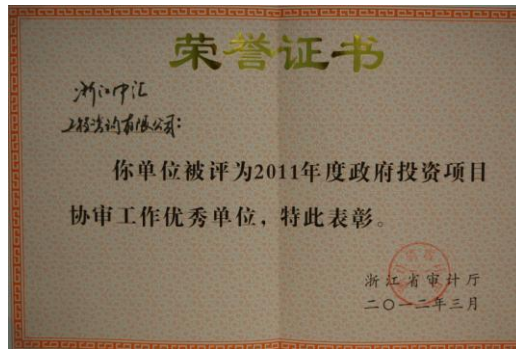 荣誉证书
浙江中汇
工程咨询有限公司：
你单位被评为2011年度政府投资项目
协审工作优秀单位，特此表彰。
浙江省审计厅
二〇一二年三月